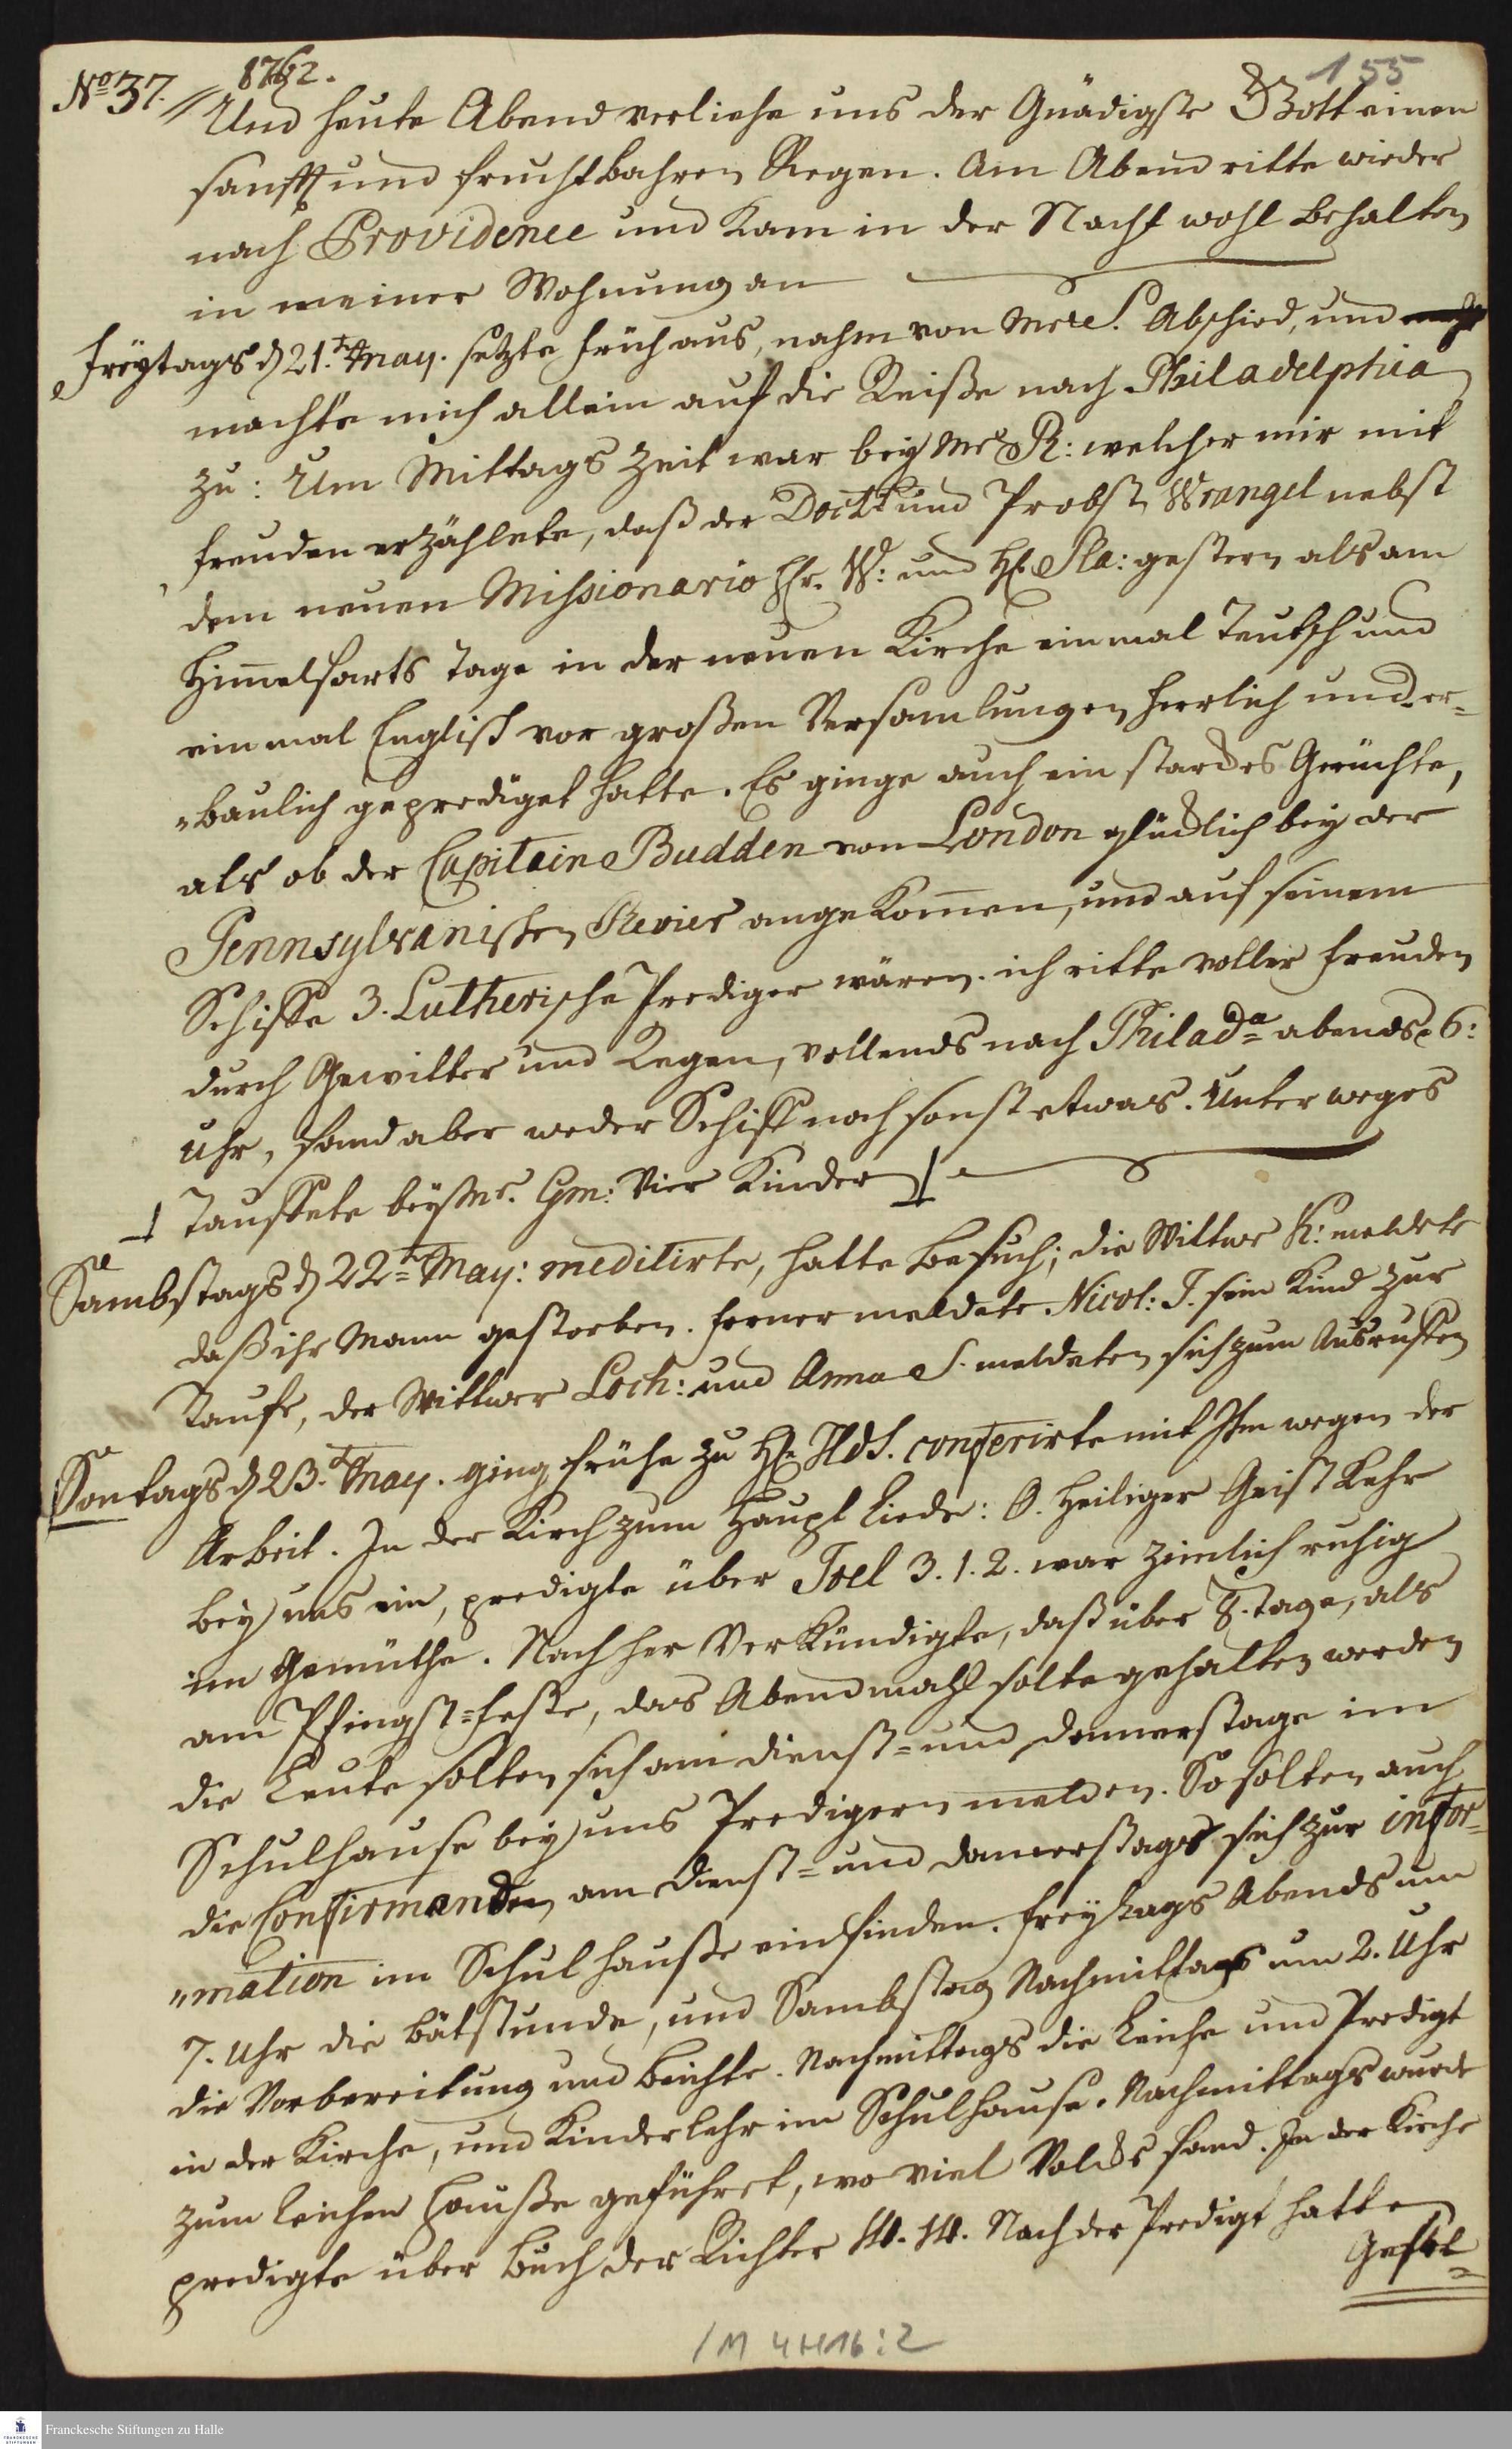 155
No 37. // 1762.
Und heute Abend verliehe uns der Gnädigste Gott einen
sanfft und fruchtbahren Regen. Am Abend ritte wieder
nach Providence und kam in der Nacht wohl behalten
in meiner Wohnung an
Freytags d 21.t May. setzte früh aus, nahm von Mrs S. Abschied, und
machte mich allein auf die Reiße nach Philadelphia
zu: Um Mittags Zeit war bey Mr R: welcher mir mit
freuden erzählete, daß der Doct: und Probst Wrangel nebst
dem neuen Missionario Hr. W: und H. Pla: gestern als am
Him̄elfarts Tage in der neuen Kirche einmal Teutsch und
einmal Englisch vor großen Versamlungen herrlich und er=
"baulich geprediget hatte. Es ginge auch ein starckes Gerüchte,
als ob der Capitain Budden von London glücklich bey der
Pennsylvanischen Revier angekom̄en, und auf seinem
Schiffe 3. Lutherische Prediger wären. ich ritte voller freuden
durch Gewitter und Regen, vollends nach Philada abends 6:
Uhr, fand aber weder Schiff noch sonst etwas. Unter weges
Tauffete bey Mr. Gm: Vier Kinder
Sambstags d 22t May: meditirte, hatte Besuch; die Wittwe K: meldete
daß ihr Mann gestorben. ferner meldete Nicol: J. sein Kind zur
Taufe, der Wittwer Loch: und Anna S. meldeten sich zum Ausruffen
Sontags d 23.t May. ging frühe zu H. Hds. conferirte mit Ihm wegen der
Arbeit. In der Kirch zum Haupt Liede: O. Heiliger Geist kehr
bey uns ein, predigte über Joel 3. 1. 2. war zimlich ruhig
im Gemüthe. Nach her Verkündigte, daß über 8. tage, als
am Pfingst=feste, das Abendmahl solte gehalten werden
die Leute solten sich am dienst= und donnerstage im
Schulhause bey uns Predigern melden. So solten auch
die Confirmanden am dienst= und donnerstags sich zur infor=
"mation im Schul hauße einfinden. freytags Abends um
7. Uhr die bätstunde, und Sambstag Nachmittags um 2. Uhr
die Vorbereitung und beichte. Nachmittags die Leiche und Predigt
in der Kirche, und Kinderlehr im Schulhause. Nachmittags wurde
zum leichen Hauße geführet, wo viel Volcks fand. In der Kirche
predigte über Buch der Richter 14. 14. Nach der Predigt hatte
Gesel=
/M 4H16:2
Franckesche Stiftungen zu Halle